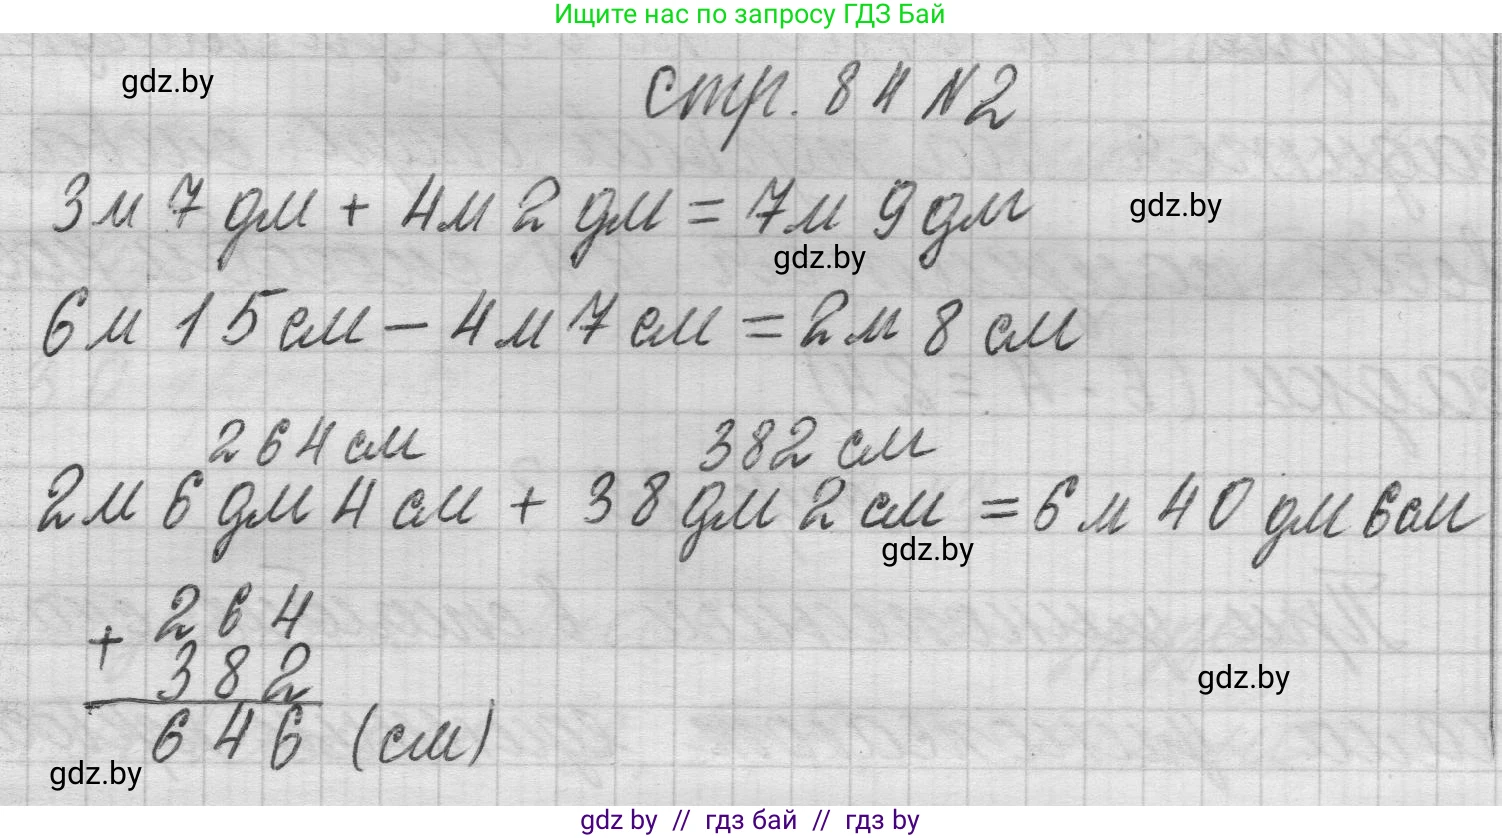 Ищите нас по запросу ГДЗ Бай
gdz.by
стр. 84 №2
3м 7 дм + 4м 2 дм = 7м 9 дм
gdz.by
gdz.by
6м 15 см - 4м 7 см = 2м 8 см
264 см 382 см
2м 6 дм 4 см + 38 дм 2 см = 6м 40 дм 6см
gdz.by
+ 264
382
gdz.by
646 (см)
gdz.by
gdz.by // гдз бай // гдз by